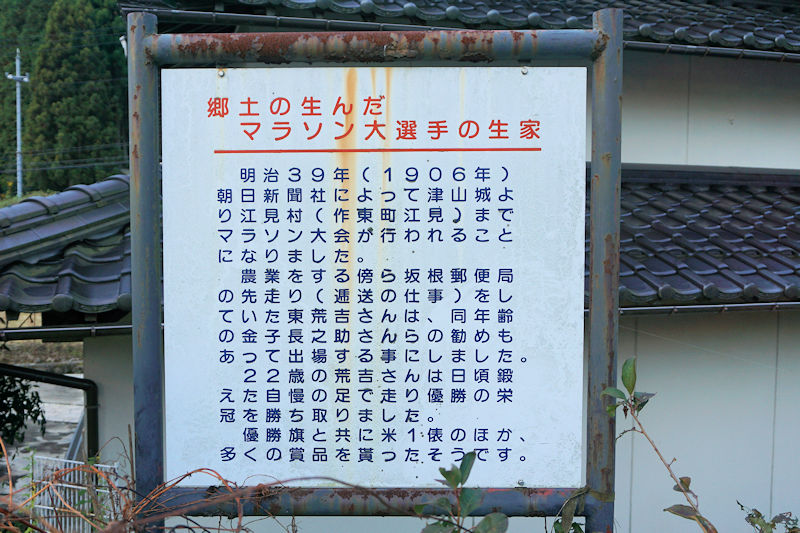 郷土の生んだ
マラソン大選手の生家
明治39年(1906年)
朝日新聞社によって津山城よ
り江見村(作東町江見)まで
マラソン大会が行われること
になりました。
農業をする傍ら坂根郵便局
の先走り(逓送の仕事)をし
ていた東荒吉さんは、同年齢
の金子長之助さんらの勧めも
あって出場する事にしました。
22歳の荒吉さんは日頃鍛
えた自慢の足で走り優勝の栄
冠を勝ち取りました。
優勝旗と共に米1俵のほか、
多くの賞品を貰ったそうです。